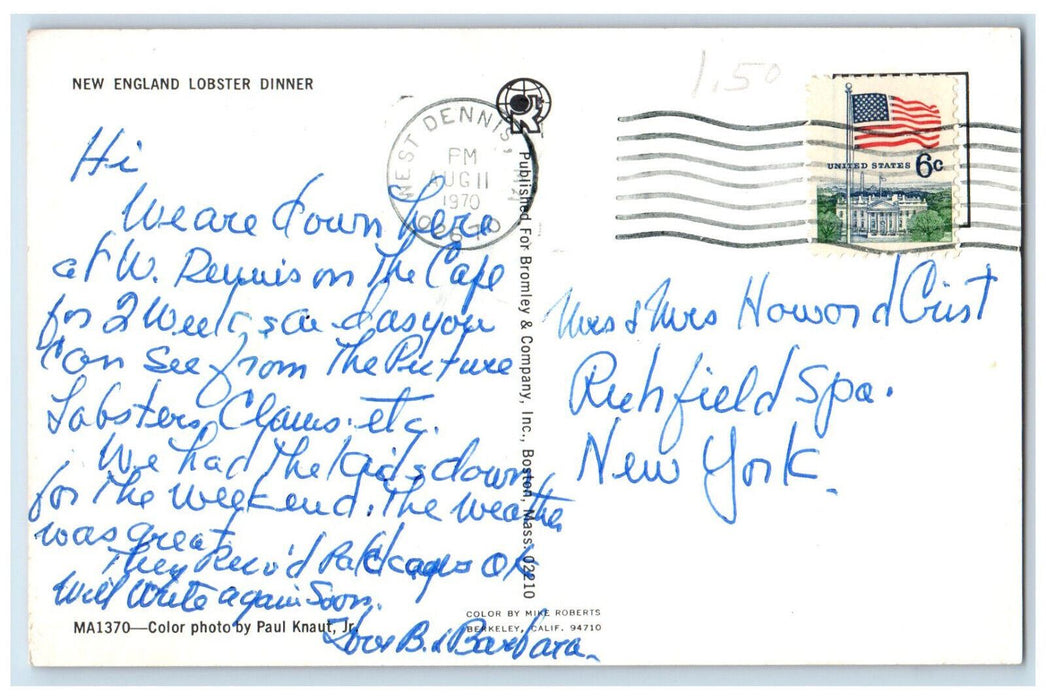 NEW ENGLAND LOBSTER DINNER
1.50
WEST DENNIS,
PM
AUG 11
1970
02670
UNITED STATES 6c
Hi
We are down here
at W. Dennis on The Cape
for 2 Weeks and as you
Can see from The Picture
Lobsters, Clams. etc.
We had The Kids down
for The weekend. The weather
was great.
They Recv'd Packages OK
Will Write again Soon.
Love B. & Barbara
Mrs & Mrs Howard Crist
Richfield Spa.
New York.
Published For Bromley & Company, Inc., Boston, Mass. 02210
MA1370—Color photo by Paul Knaut, Jr.
COLOR BY MIKE ROBERTS
BERKELEY, CALIF. 94710